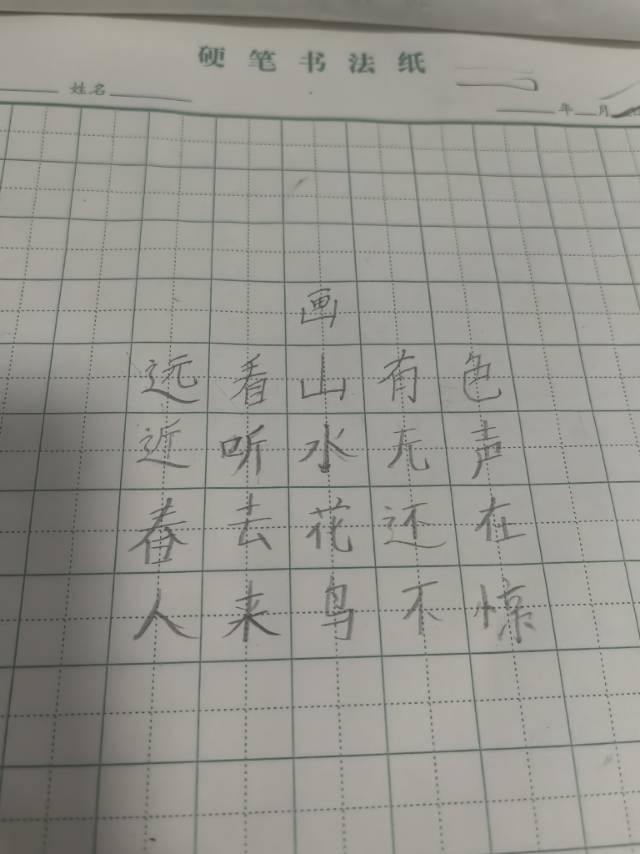 硬笔书法纸
姓名
年 月
画
远看山有色
近听水无声
春去花还在
人来鸟不惊